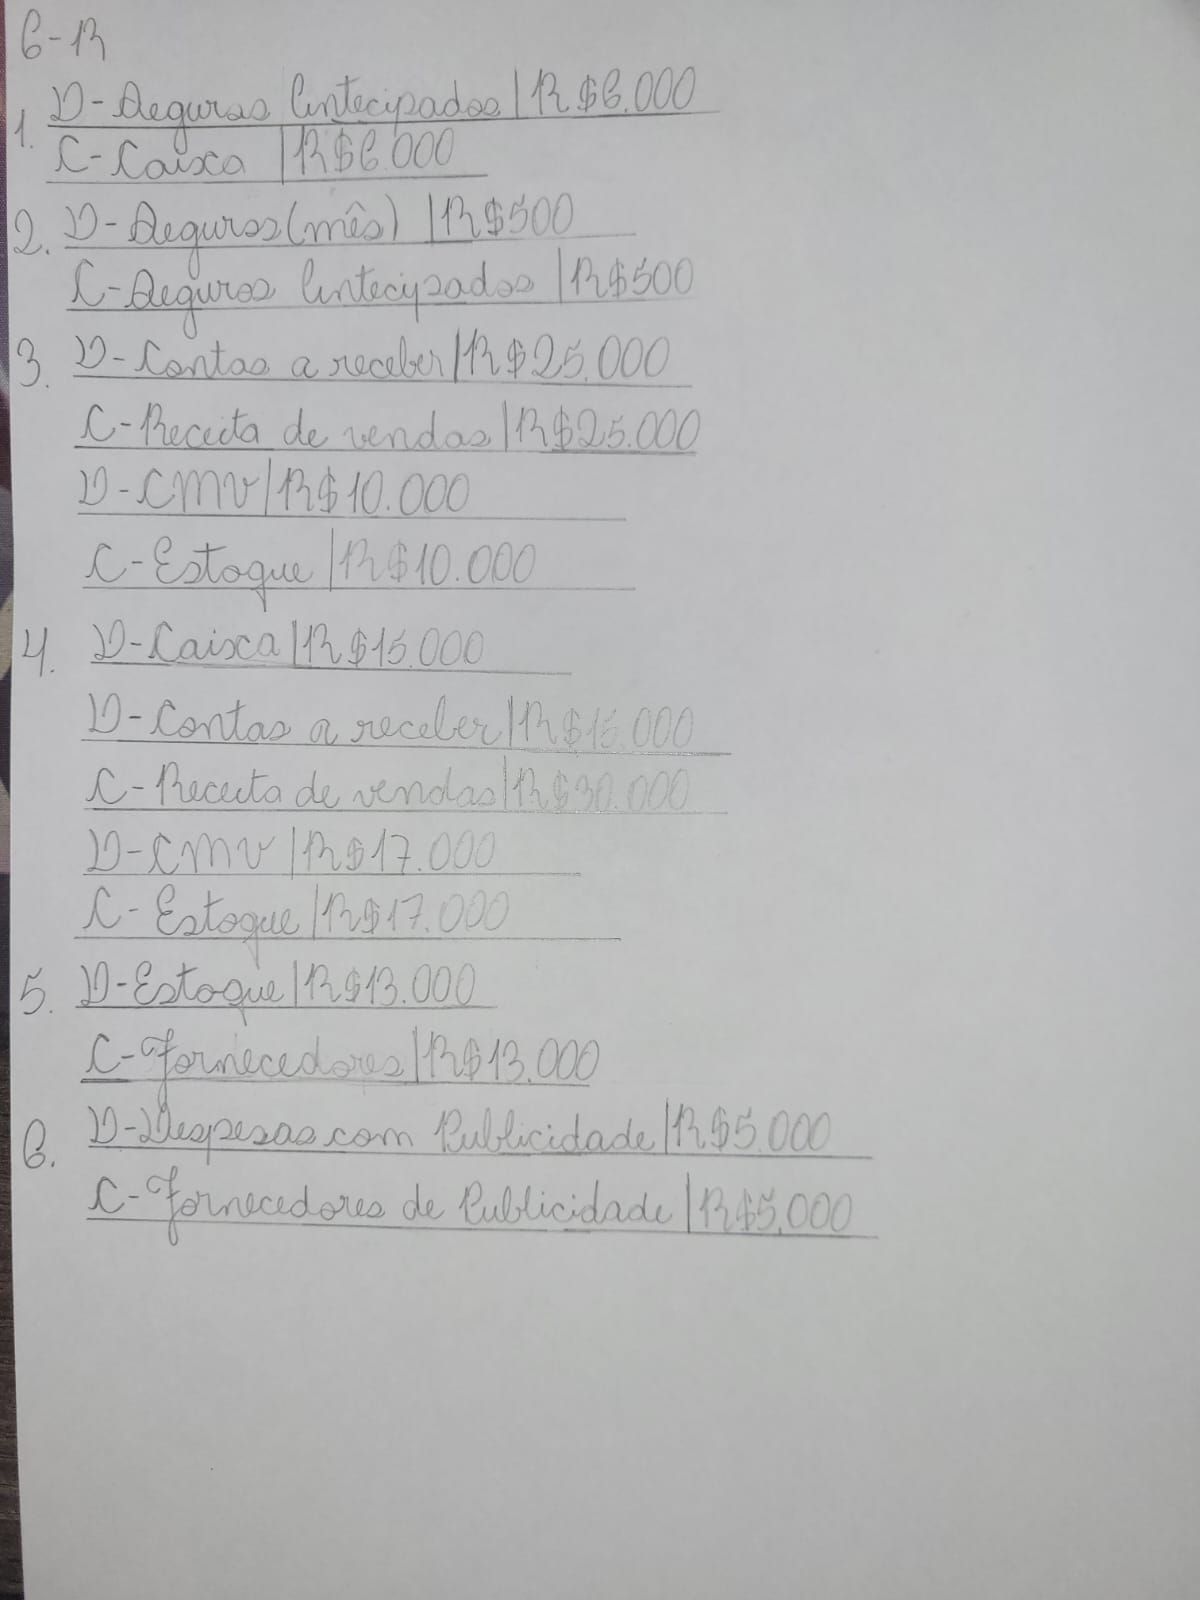 6-R
1. D-Seguros Antecipados | R$6.000
C-Caixa | R$6.000
2. D-Seguros(mês) | R$500
C-Seguros Antecipados | R$500
3. D-Contas a receber | R$25.000
C-Receita de vendas | R$25.000
D-CMV | R$10.000
C-Estoque | R$10.000
4. D-Caixa | R$15.000
D-Contas a receber | R$15.000
C-Receita de vendas | R$30.000
D-CMV | R$17.000
C-Estoque | R$17.000
5. D-Estoque | R$13.000
C-Fornecedores | R$13.000
6. D-Despesas com Publicidade | R$5.000
C-Fornecedores de Publicidade | R$5.000